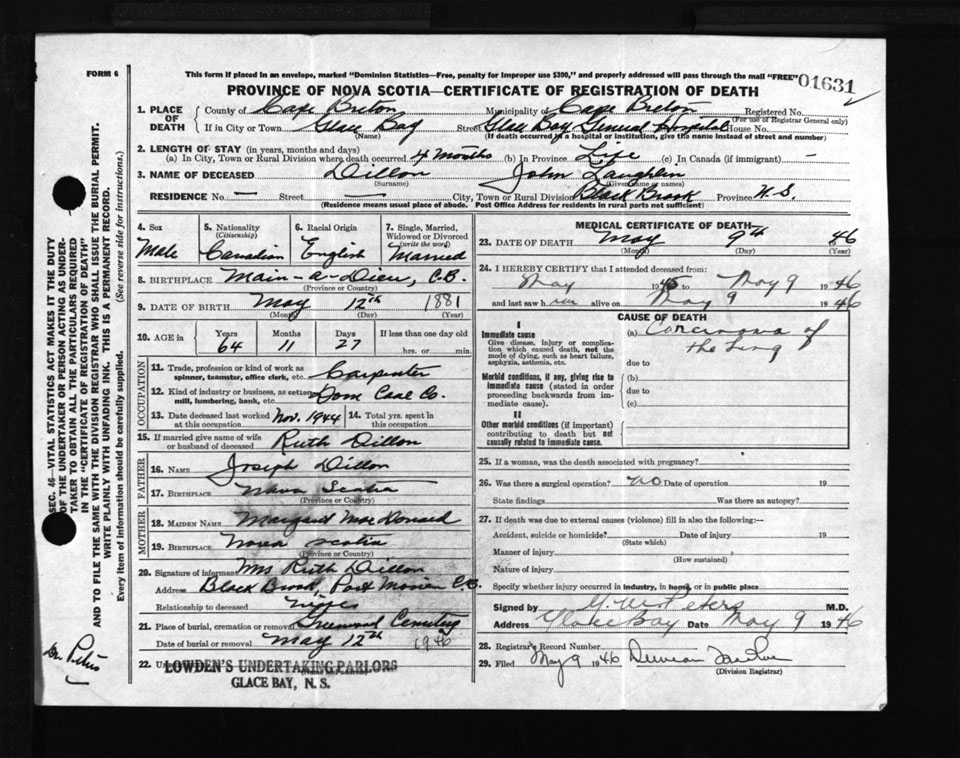 FORM 6
This form if placed in an envelope, marked "Dominion Statistics—Free, penalty for improper use $300," and properly addressed will pass through the mail "FREE"
01631
PROVINCE OF NOVA SCOTIA—CERTIFICATE OF REGISTRATION OF DEATH
1. PLACE OF DEATH County of Cape Breton Municipality of Cape Breton Registered No.
(For use of Registrar General only)
If in City or Town Glace Bay Street Glace Bay General Hospital House No.
(Name) (If death occurred in a hospital or institution, give the name instead of street and number)
2. LENGTH OF STAY (in years, months and days)
(a) In City, Town or Rural Division where death occurred 4 months (b) In Province Life (c) In Canada (if immigrant) —
3. NAME OF DECEASED Dillon John Laughlin
(Surname) (Given name or names)
RESIDENCE No. — Street — City, Town or Rural Division Black Brook Province N.S.
(Residence means usual place of abode. Post Office Address for residents in rural parts not sufficient)
4. Sex Male
5. Nationality (Citizenship) Canadian
6. Racial Origin English
7. Single, Married, Widowed or Divorced (write the word) Married
8. BIRTHPLACE Main-a-Dieu, C.B.
(Province or Country)
9. DATE OF BIRTH May 12th 1881
(Month) (Day) (Year)
10. AGE in Years Months Days If less than one day old
64 11 27 hrs. or min.
OCCUPATION
11. Trade, profession or kind of work as spinner, teamster, office clerk, etc. Carpenter
12. Kind of industry or business, as cotton mill, lumbering, bank, etc. Dom Coal Co.
13. Date deceased last worked at this occupation Nov. 1944
14. Total yrs. spent in this occupation
15. If married give name of wife or husband of deceased Ruth Dillon
FATHER
16. NAME Joseph Dillon
17. BIRTHPLACE Nova Scotia
(Province or Country)
MOTHER
18. MAIDEN NAME Margaret MacDonald
19. BIRTHPLACE Nova Scotia
(Province or Country)
20. Signature of informant Mrs Ruth Dillon
Address Black Brook, Port Morien C.B.
Relationship to deceased Wife
21. Place of burial, cremation or removal Greenwood Cemetery
Date of burial or removal May 12th 1946
22. Undertaker
LOWDEN'S UNDERTAKING PARLORS
GLACE BAY, N. S.
MEDICAL CERTIFICATE OF DEATH
23. DATE OF DEATH May 9th 1946
(Month) (Day) (Year)
24. I HEREBY CERTIFY that I attended deceased from
May 1945 to May 9 1946
and last saw him alive on May 9 1946
CAUSE OF DEATH
I
Immediate cause
Give disease, injury or complication which caused death, not the mode of dying, such as heart failure, asphyxia, asthenia, etc.
(a) Carcinoma of the Lung
due to
Morbid conditions, if any, giving rise to immediate cause (stated in order proceeding backwards from immediate cause).
(b)
due to
(c)
II
Other morbid conditions (if important) contributing to death but not causally related to immediate cause.
25. If a woman, was the death associated with pregnancy?
26. Was there a surgical operation? no Date of operation 19
State findings Was there an autopsy?
27. If death was due to external causes (violence) fill in also the following:—
Accident, suicide or homicide? Date of injury 19
(State which)
Manner of injury
(How sustained)
Nature of injury
Specify whether injury occurred in industry, in home, or in public place
Signed by Peters M.D.
Address Glace Bay Date May 9 1946
28. Registrar's Record Number
29. Filed May 9 1946 Duncan
(Division Registrar)
SEC. 46—VITAL STATISTICS ACT MAKES IT THE DUTY
OF THE UNDERTAKER OR PERSON ACTING AS UNDER-
TAKER TO OBTAIN ALL THE PARTICULARS REQUIRED
IN THE "CERTIFICATE OF REGISTRATION OF DEATH"
AND TO FILE THE SAME WITH THE DIVISION REGISTRAR WHO SHALL ISSUE THE BURIAL PERMIT.
WRITE PLAINLY WITH UNFADING INK. THIS IS A PERMANENT RECORD.
Every item of information should be carefully supplied. (See reverse side for instructions.)
Dr. Peters